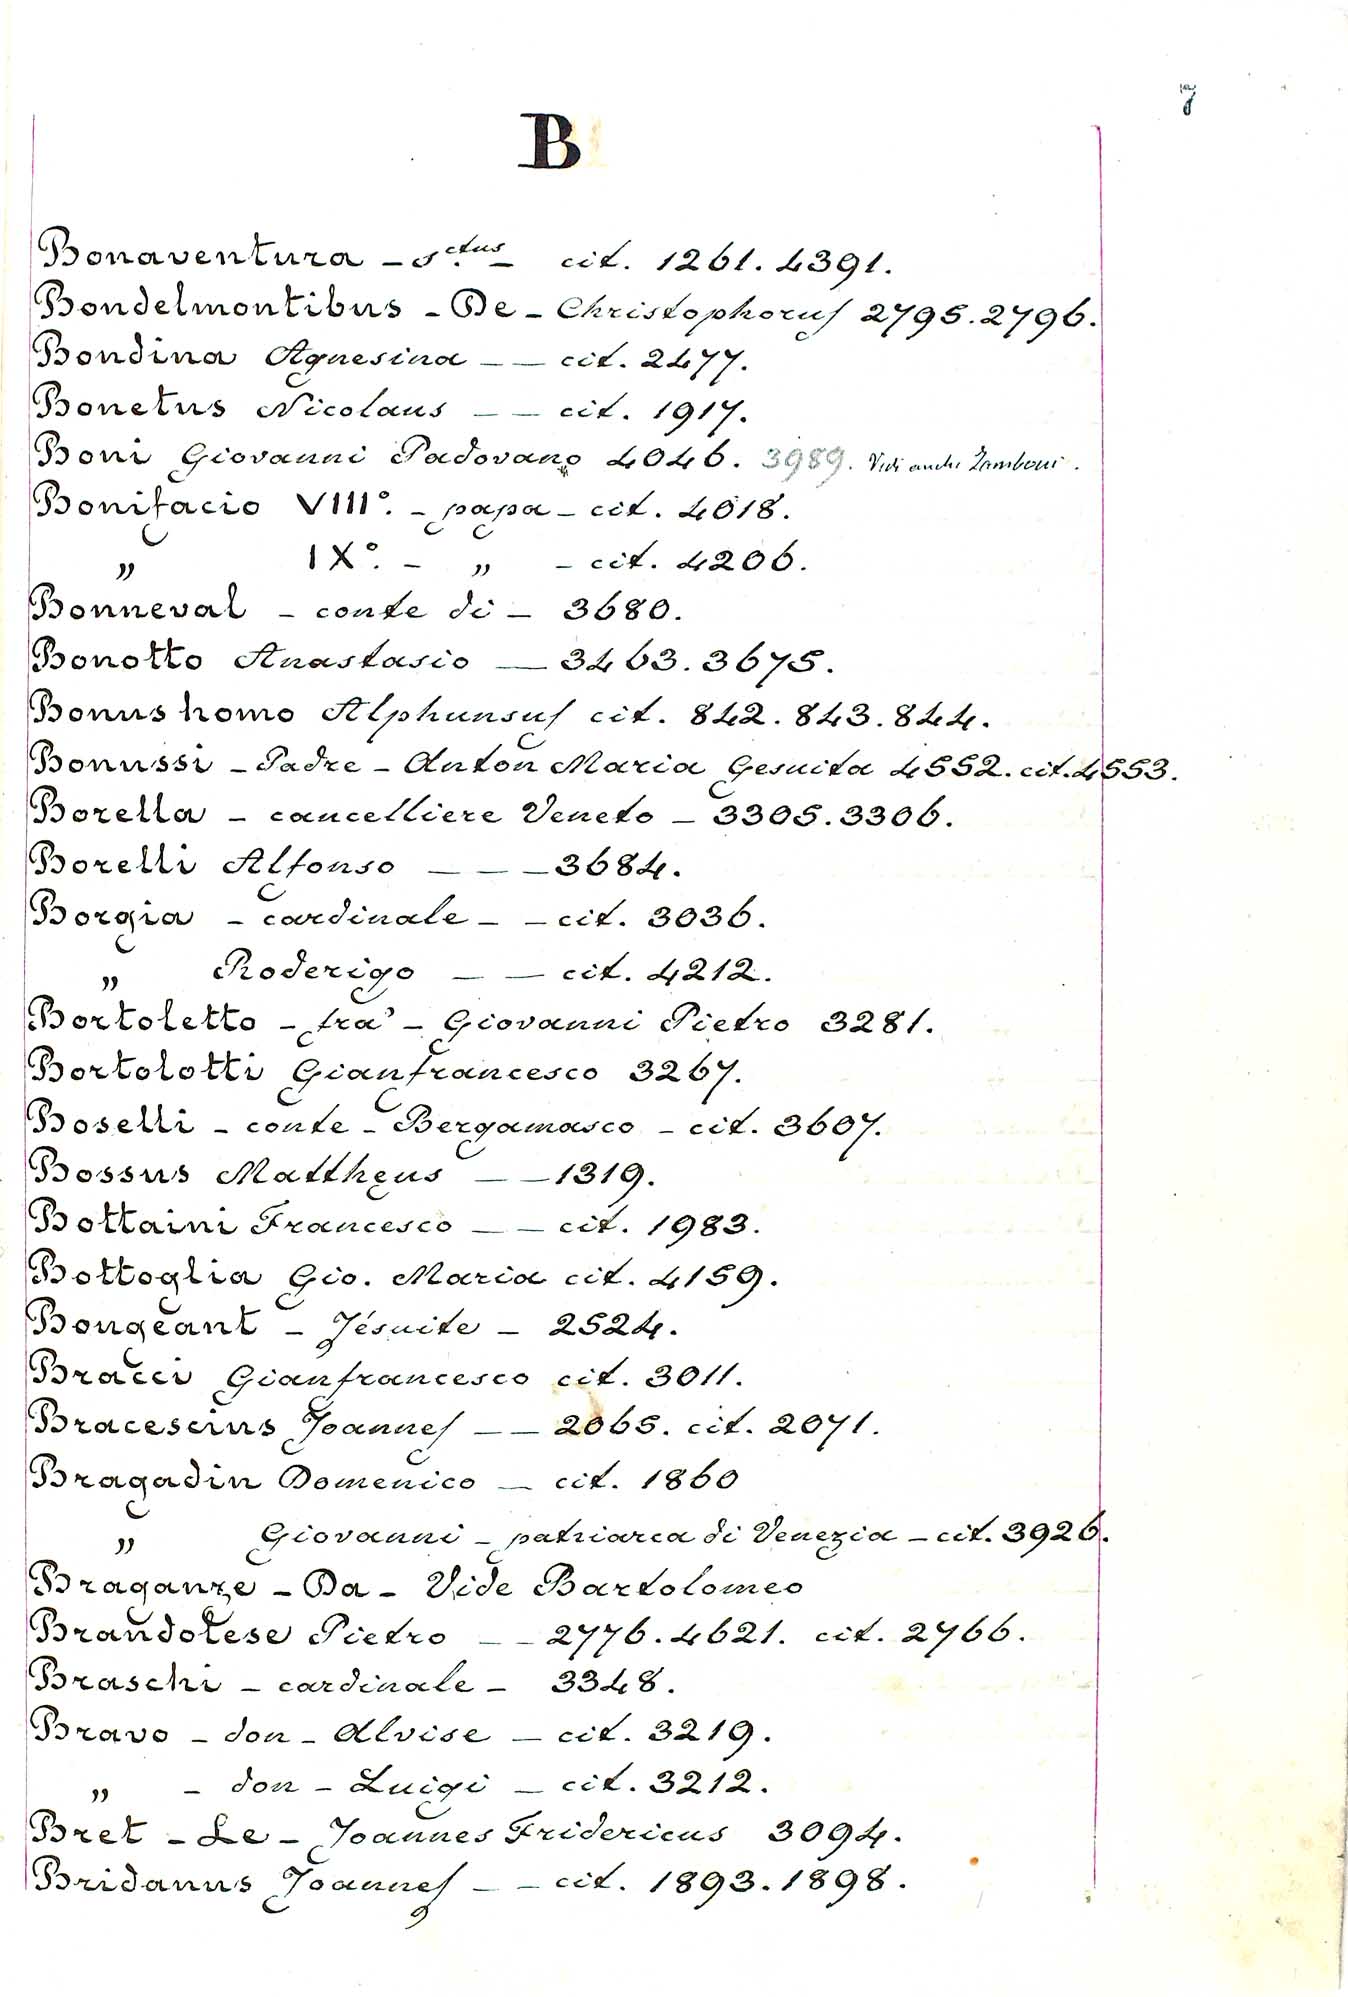 7
B
Bonaventura – s.ctus – cit. 1261. 4391.
Bondelmontibus – De – Christophorus 2795. 2796.
Bondina Agnesina – – cit. 2477.
Bonetus Nicolaus – – cit. 1917.
Boni Giovanni Padovano 4046. 3989. Vedi anche Zamboni.
Bonifacio VIII°. – papa – cit. 4018.
„ IX°. – „ – cit. 4206.
Bonneval – conte di – 3680.
Bonotto Anastasio – 3463. 3675.
Bonus homo Alphunsus cit. 842. 843. 844.
Bonussi – Padre – Anton Maria Gesuita 4552. cit. 4553.
Borella – cancelliere Veneto – 3305. 3306.
Borelli Alfonso – – – 3684.
Borgia – cardinale – – cit. 3036.
„ Roderigo – – cit. 4212.
Bortoletto – fra' – Giovanni Pietro 3281.
Bortolotti Gianfrancesco 3267.
Boselli – conte – Bergamasco – cit. 3607.
Bossus Mattheus – – 1319.
Bottaini Francesco – – cit. 1983.
Bottoglia Gio. Maria cit. 4159.
Bougeant – Jésuite – 2524.
Bracci Gianfrancesco cit. 3011.
Bracescius Joannes – – 2065. cit. 2071.
Bragadin Domenico – cit. 1860
„ Giovanni – patriarca di Venezia – cit. 3926.
Braganze – Da – Vide Bartolomeo
Brandolese Pietro – – 2776. 4621. cit. 2766.
Braschi – cardinale – 3348.
Bravo – don – Alvise – cit. 3219.
„ – don – Luigi – cit. 3212.
Bret – Le – Joannes Fridericus 3094.
Bridanus Joannes – – cit. 1893. 1898.